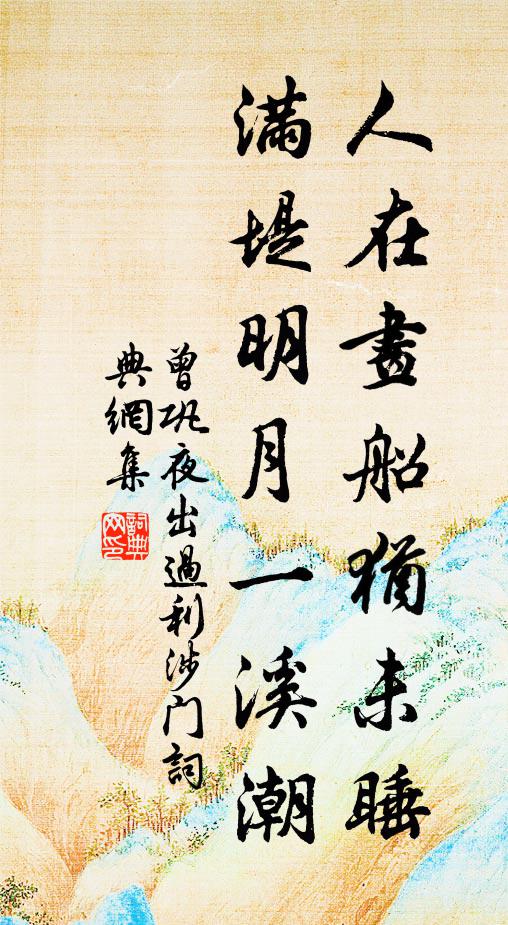 人在畫船猶未睡
滿堤明月一溪潮
曾巩夜出過利涉门詞
典網集
詞典
网印